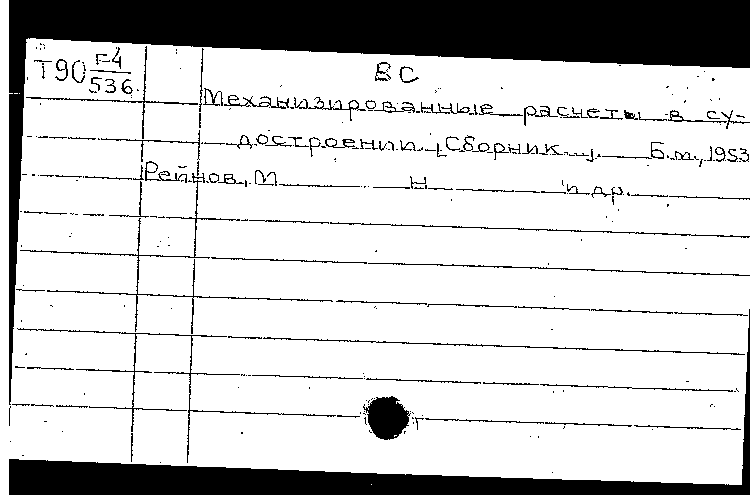 Т90 Г-4/536
ВС
Механизированные расчеты в су-
достроении. [Сборник]. Б.м., 1953
Рейнов, М Н и др.